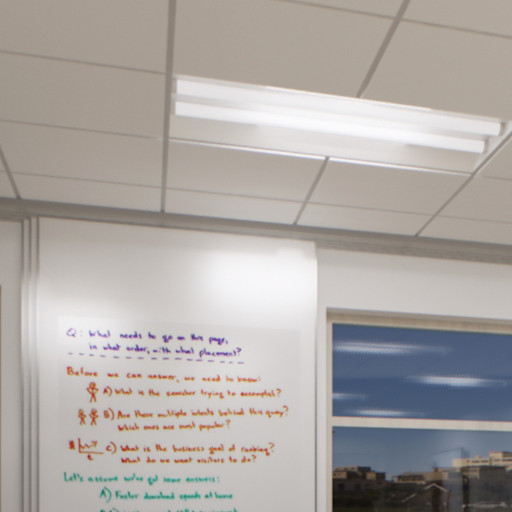 Q: What needs to go on this page,
in what order, with what placement?
Before we can answer, we need to know:
A) What is the searcher trying to accomplish?
B) Are there multiple intents behind this query?
Which ones are most popular?
C) What is the business goal of ranking?
What do we want visitors to do?
Let's assume we've got some answers:
A) Faster download speeds at home